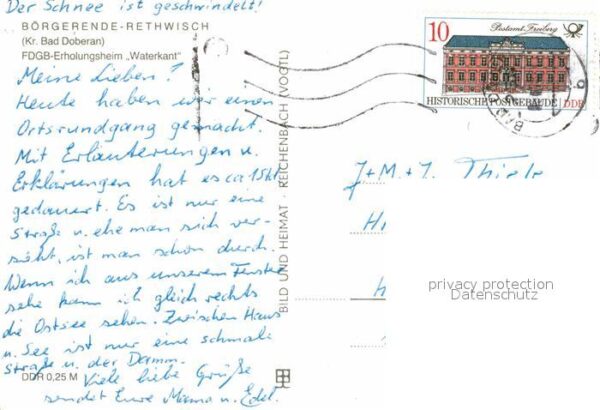 Der Schnee ist geschwindelt!
BÖRGERENDE-RETHWISCH
(Kr. Bad Doberan)
FDGB-Erholungsheim „Waterkant"
Meine Lieben!
Heute haben wir einen
Ortsrundgang gemacht.
Mit Erläuterungen u.
Erklärungen hat es ca 1 Std.
gedauert. Es ist nur eine
Straße u. ehe man sich ver-
sieht, ist man schon durch.
Wenn ich aus unserem Fenster
sehe kann ich gleich rechts
die Ostsee sehen. Zwischen Haus
u. See ist nur eine schmale
Straße u. der Damm.
Viele liebe Grüße
sendet Eure Mama u. Edel.
DDR 0,25 M
BILD UND HEIMAT · REICHENBACH (VOGTL)
10
Postamt Freiberg
HISTORISCHE POSTGEBÄUDE DDR
J+M+J. Thiele
privacy protection
Datenschutz